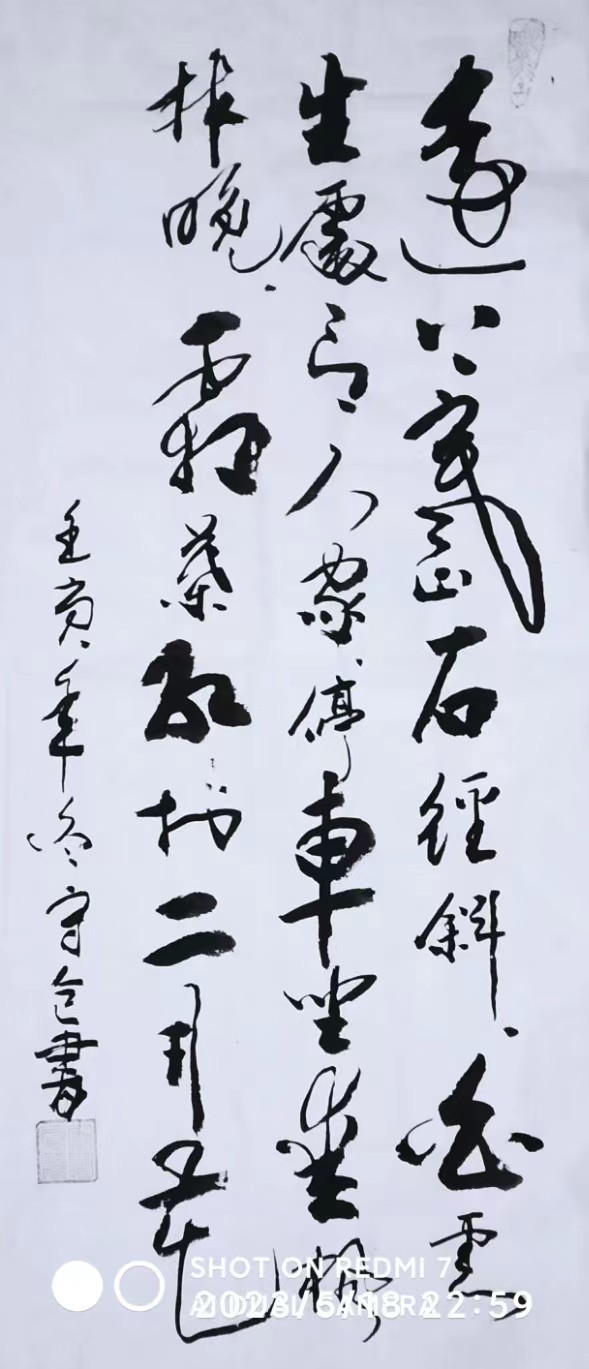 遠上寒山石徑斜白雲
生處有人家停車坐愛楓
林晚霜葉紅於二月花
壬寅年冬守書
SHOT ON REDMI 7
AI DUAL CAMERA
2023/5/18 22:59